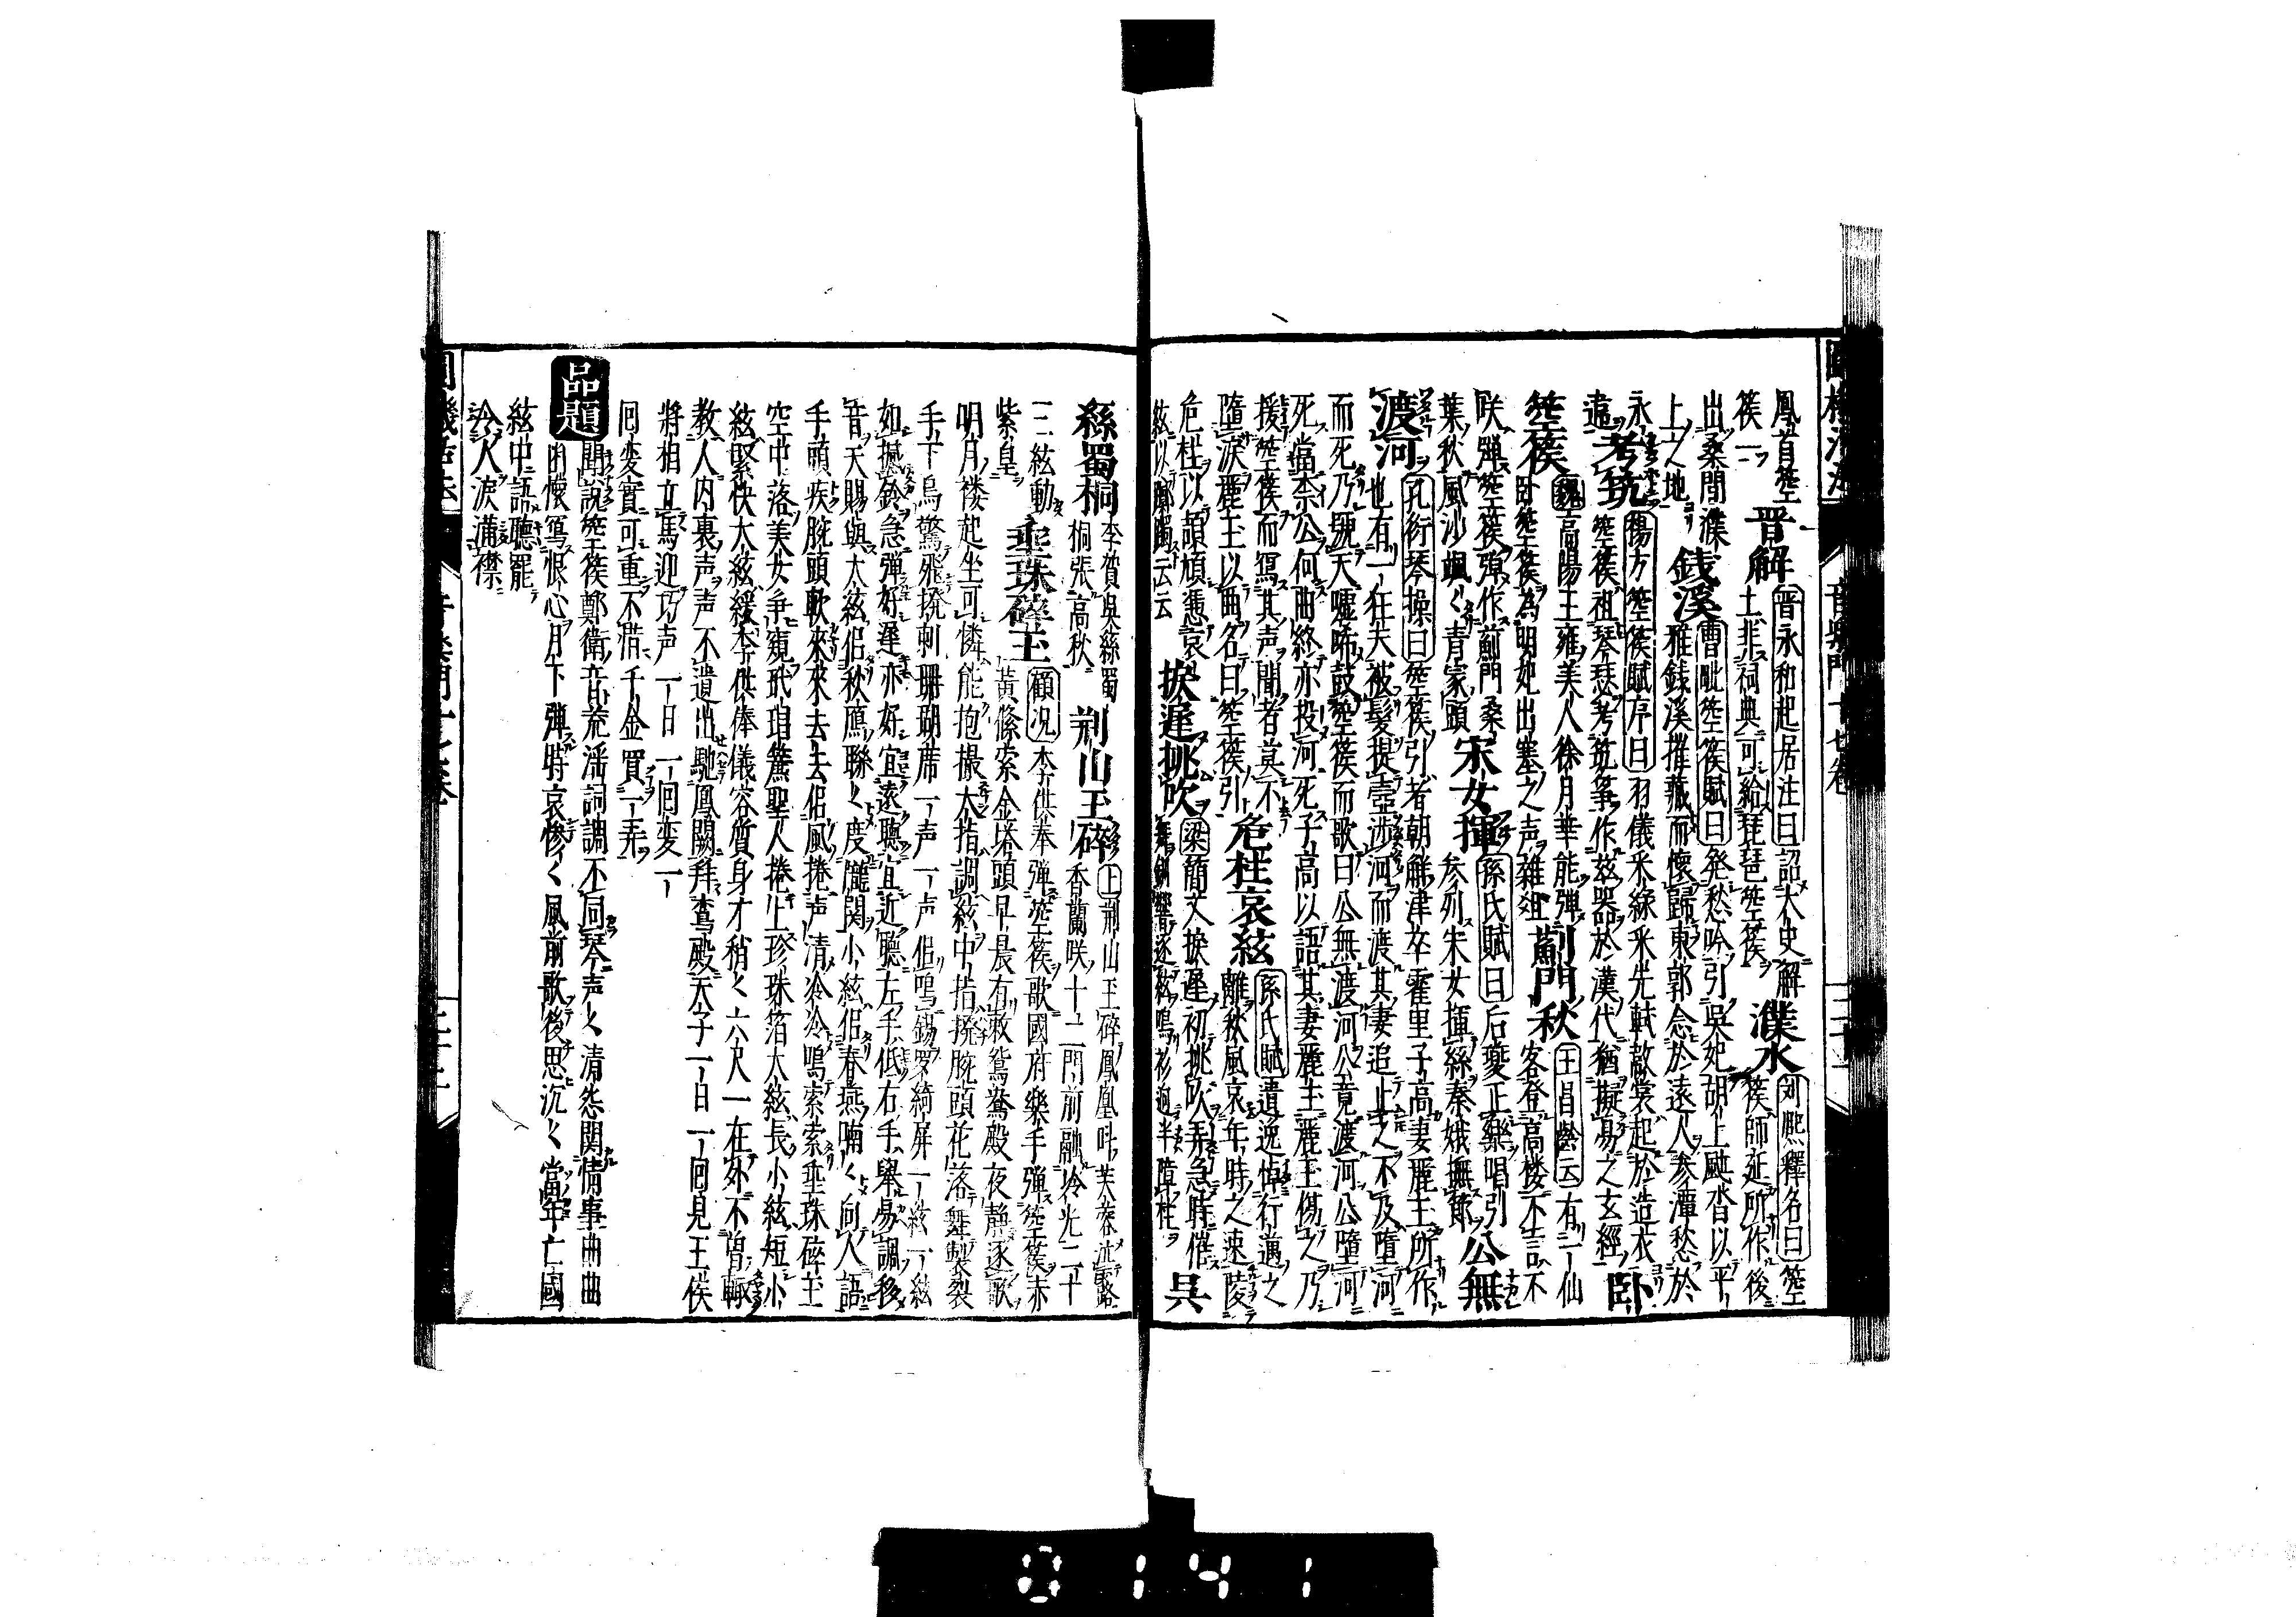 鳳首箜　晋解　晋永和起居注曰詔太史解　濮水　刘熙釋名曰箜
篌一　土非祠典可給琵琶箜篌　篌師延所作後
出桑間濮　錢溪　曹毗箜篌賦曰発愁吟引吳妃胡上颰沓以平
上之地　雅錢溪推藏而懷歸東郭念於遠人参潭愁於
永　考筑　楊方箜篌賦序曰羽儀釆緑釆先軾敵裳起於造衣
遠　箜篌祖琴瑟考筑筝作兹器於漢代猶擬易之玄經　卧
箜篌　魏高陽王雍美人徐月華能彈　薊門秋　王昌齡云有一仙
卧箜篌為明妃出塞之声　客登高楼不言不
咲彈箜篌彈作薊門桑　宋女揮　孫氏賦曰后夔正樂唱引　公無
葉秋風沙颯々青家頭　参列宋女揮絲秦娥撫節
渡河　孔衍琴操曰箜篌引者朝鮮津卒霍里子高妻麗玉所作
也有一狂夫被髪提壺渉河而渡其妻追止之不及墮河
而死乃號天嘘唏鼓箜篌而歌曰公無渡河公竟渡河公墮河
死當柰公何曲終亦投河死子高以語其妻麗玉麗玉傷之乃
援箜篌而冩其声聞者莫不　危柱哀絃　孫氏賦遺逸悼行邁之
墮淚麗玉以曲名曰箜篌引　離秋風哀年時之速陵
危柱以頡頏憑哀　捩遲挑吹　梁簡文捩遲初挑吹弄急時催　吴
絃以躑躅云云　舞釧響逐絃鳴衫迴半障柱
絲蜀桐　李賀吳絲蜀　荆山玉碎　上荆山玉碎鳳凰叫芙蓉泣露
桐張高秋　香蘭咲十二門前融冷光二十
三絃動　垂珠碎玉　顧况李供奉彈箜篌歌國府樂手彈箜篌赤
紫皇　黃絛索金塔頭早晨有敕鴛鴦殿夜靜逐歌
明月楼起坐可憐能抱撮大指調絃中指撥腕頭花落舞製裂
手下鳥驚飛撥刺珊瑚席一声一声侣鳴錫罗綺屏一絃一絃
如撼鈴急彈好遲亦好宜遠聽宜近聽左手低右手舉易調移
音天賜與大絃侣秋鴈聯々度隴関小絃侣春燕喃々向人語
手頭疾腕頭軟來來去去侣風捲声清冷冷鳴索索垂珠碎玉
空中落美女争窺玳瑁簾聖人捲上珍珠箔大絃長小絃短小
絃緊快大絃緩李供俸儀容質身才稍々六尺一在外不曽輙
教人内裏声声不遣出馳鳳闕拜鸞殿天子一日一囘見王侯
將相立馬迎巧声一日一囘変一
囘変實可重不惜千金買一弄
品題　聞説箜篌鄭衛音荒淫詞調不同琴声々清怨関情事曲曲
幽懷冩恨心月下彈時哀惨々風前歌後思沉々當年亡國
絃中語聽罷
泠人淚滿襟
0141